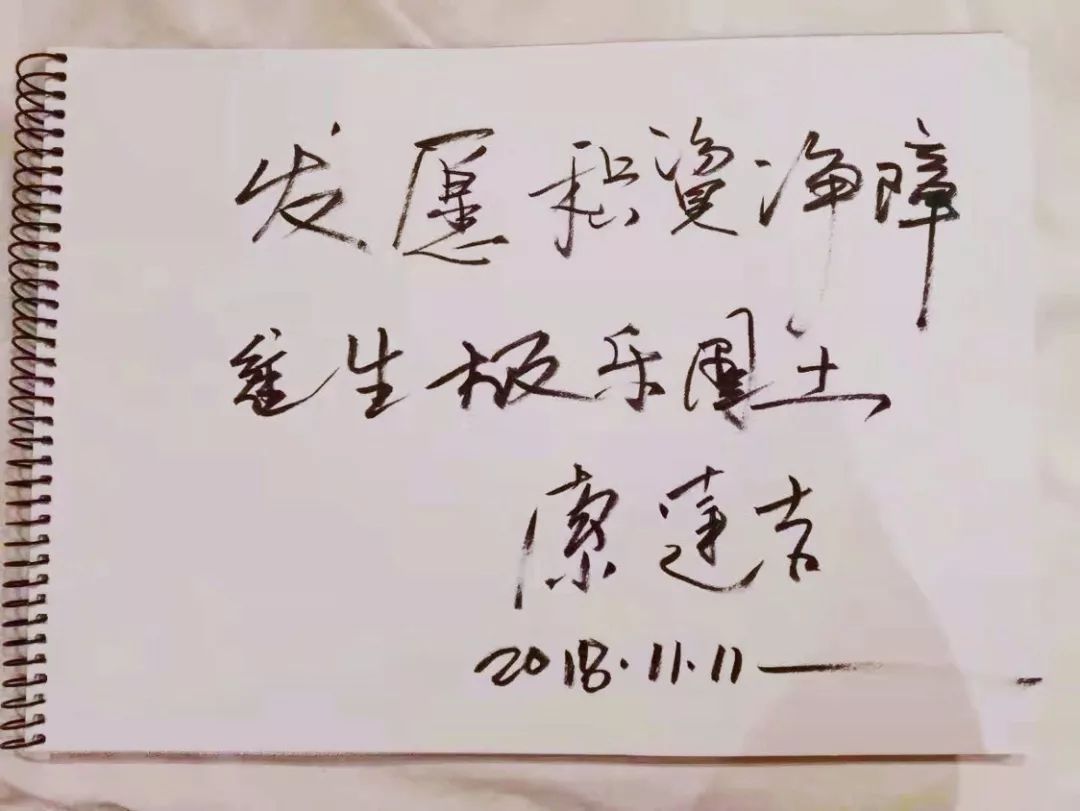 发愿积資净障
生极乐国土
索达吉
2018.11.11